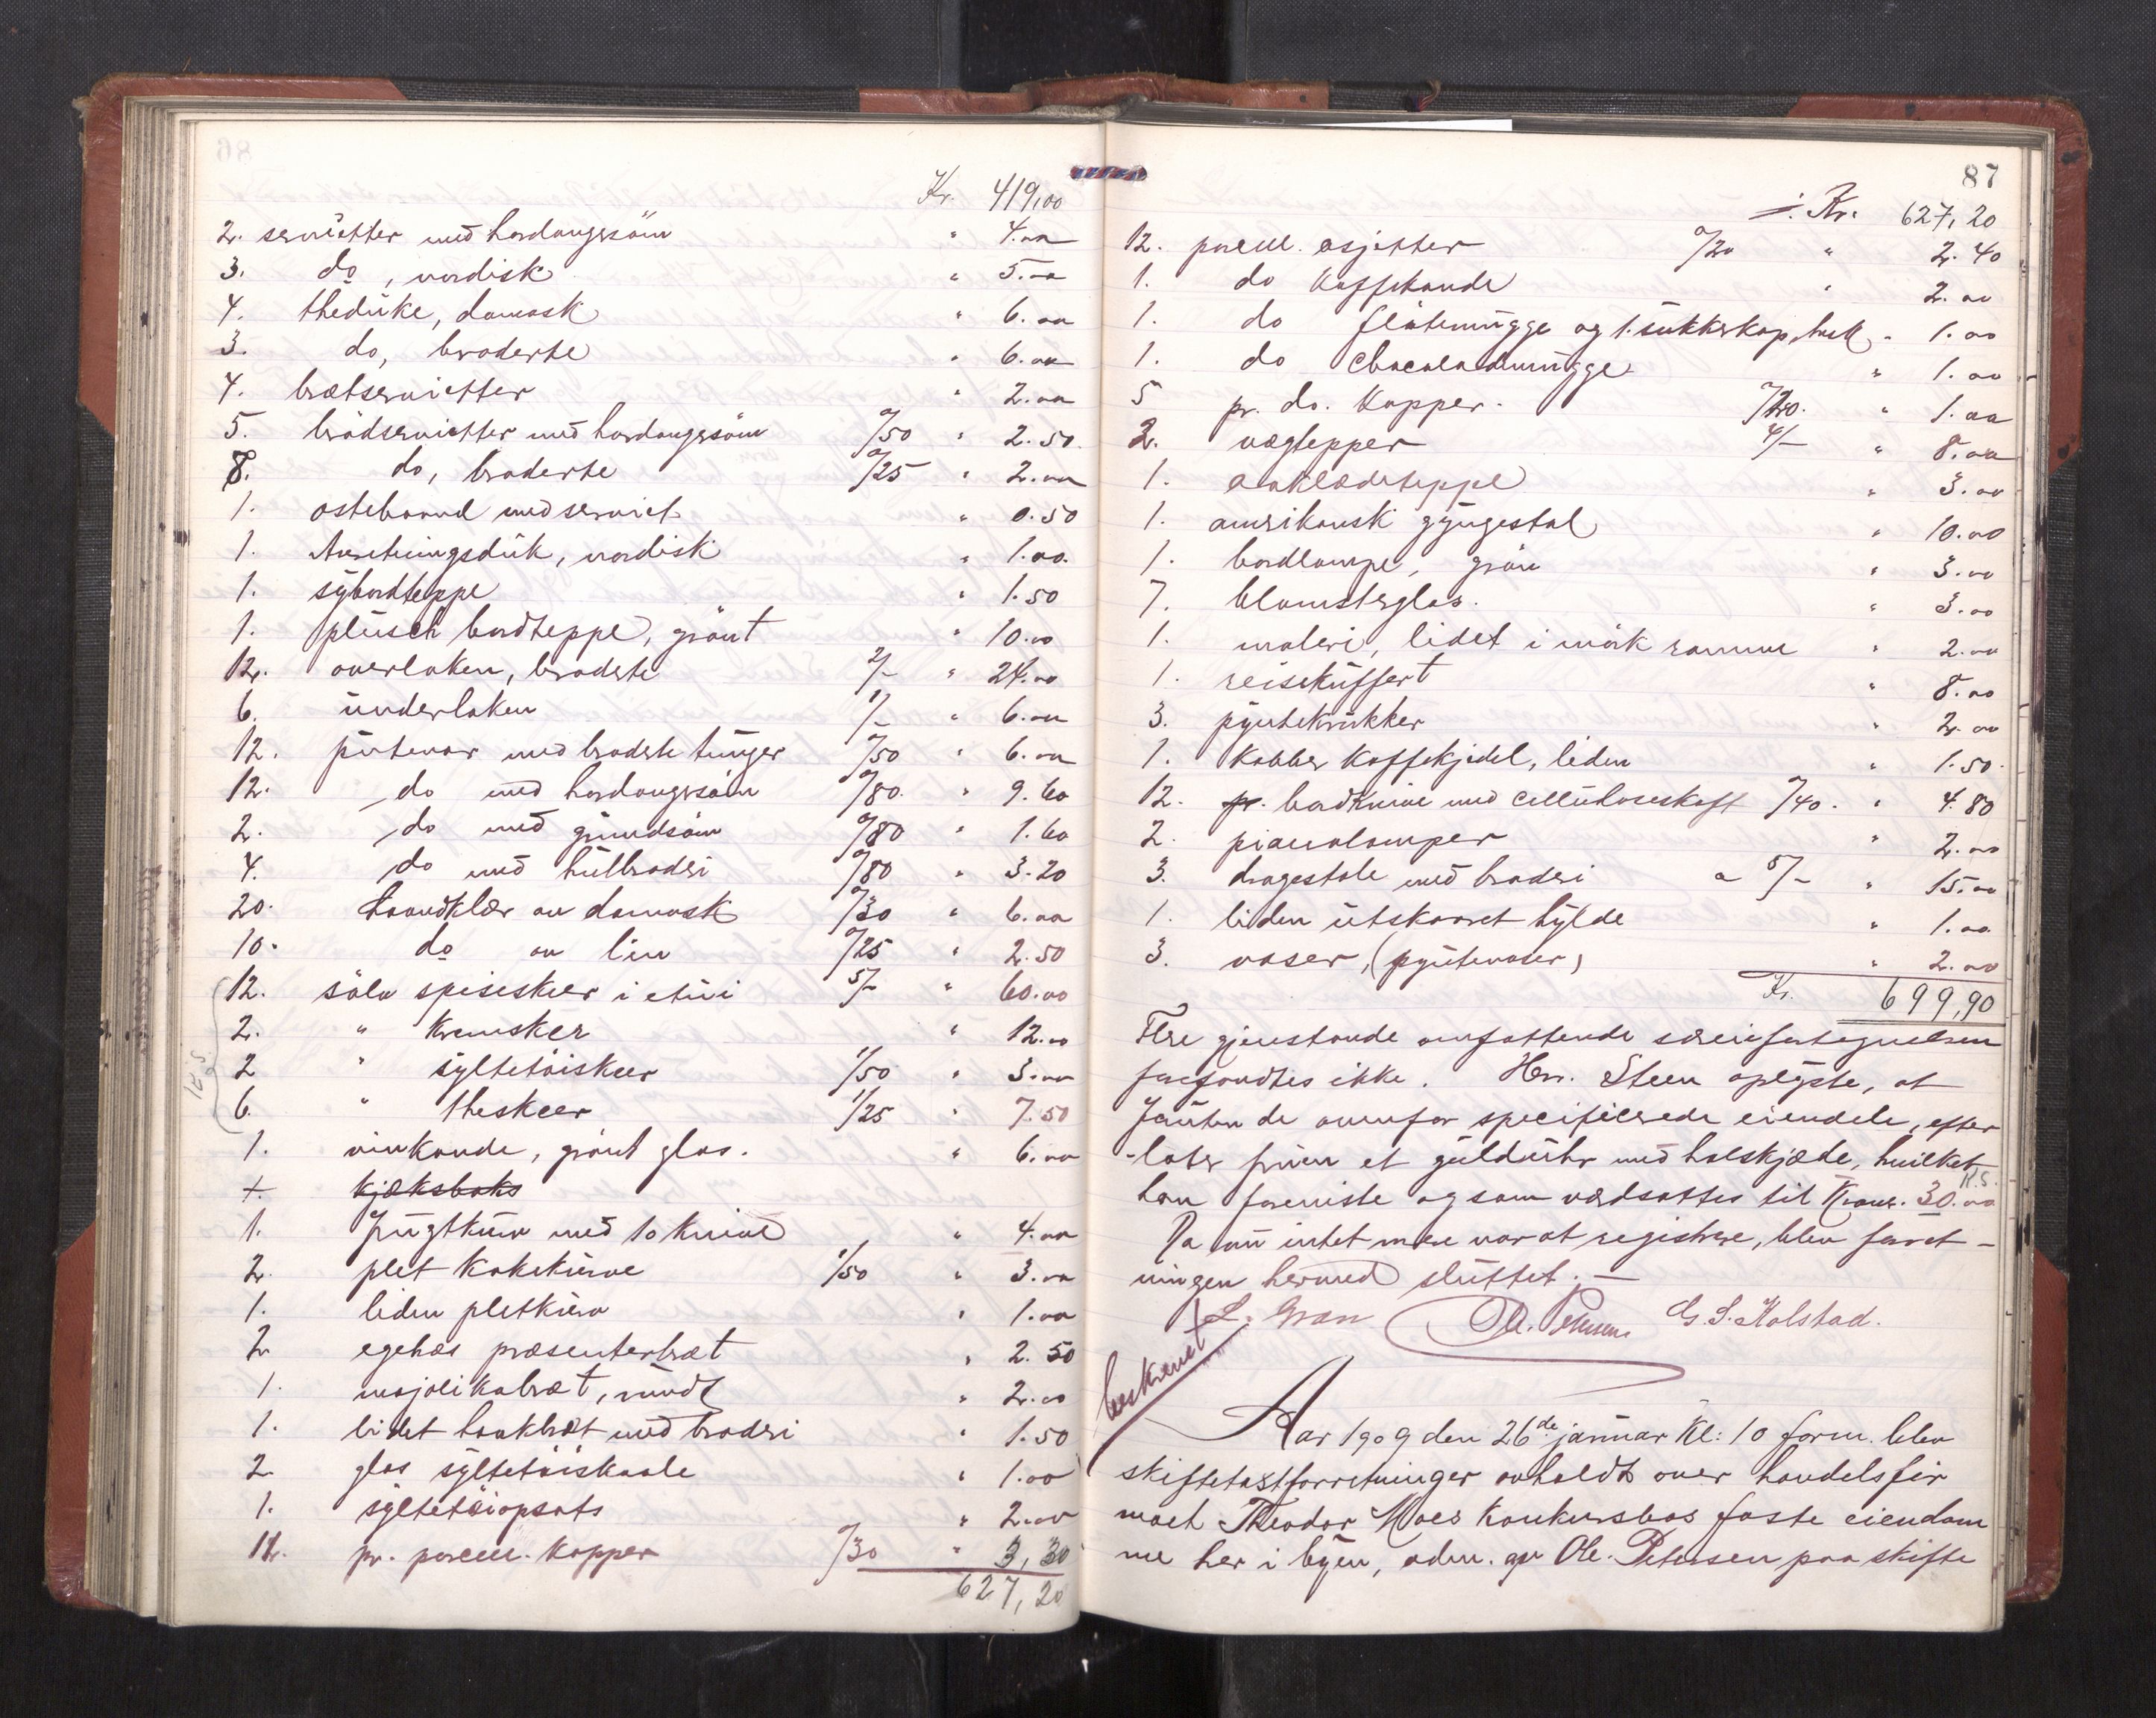 Kr. 419,00
2. servietter med hardangersöm " 4.00
3. do, nordisk " 5.00
4. theduke, damask " 6.00
3. do, broderte " 6.00
4. brætservietter " 2.00
5. brödservietter med hardangersöm 0/50 " 2.50
8. do, broderte 0/25 " 2.00
1. ostebaand med serviet " 0.50
1. Anretningsduk, nordisk " 1.00
1. sybordteppe " 1.50
1. plüsch bordteppe, grönt " 10.00
12. overlaken, broderte 2/- " 24.00
6. underlaken 1/- " 6.00
12. putevar med broderte tunger 0/50 " 6.00
12. do med hardangersöm 0/80 " 9.60
2. do med grundsöm 0/80 " 1.60
4. do med hulbroderi 0/80 " 3.20
20. haandklær av damask 0/30 " 6.00
10. do av lin 0/25 " 2.50
12. sölv spiseskeer i etui 5/- " 60.00
2. " kremskeer " 12.00
2 " syltetöiskeer 1/50 " 3.00
6. " theskeer 1/25 " 7.50
1. vinkande, grönt glas. " 6.00
kjæksboks
1. frugtkurv med 10 knive " 4.00
2. plet kakekurve 1/50 " 3.00
1. liden pletkurv " 1.00
2 egetræs præsenterbræt " 2.50
1. majolikabræt, rundt " 2.00
1. lidet bræt med broderi " 1.50
2 glas syltetöiskaale " 1.00
1. syltetöiopsats " 2.00
pr. porcell. kopper 0/30 " 3,30
627,20
87
Kr. 627,20
12. porcell. asjetter 0/20 " 2.40
1. do kaffekande " 2.00
1. do flötemugge og 1. sukkerkop, " 1.00
1. do chocolademugge " 1.00
5 pr. do. kopper. 0/20. " 1.00
2. vægtepper 4/- " 8.00
1. aaklædeteppe " 3.00
1. amerikansk gyngestol " 10.00
1. bordlampe, grön " 3.00
7. blomsterglas. " 3.00
1. maleri, lidet i mörk ramme " 2.00
1. reisekuffert " 8.00
3. pyntekrukker " 2.00
1. kobber kaffekjedel, liden " 1.50
12. pr. bordknive med celluloseskaft 0/40. " 4.80
2. pianolamper " 2.00
3. dragestole med broderi a 5/- " 15.00
1. liden utskaaret hylde " 1.00
3. vaser, (pyntevaser) " 2.00
Kr. 699,90
Flere gjenstande omfattende særeiefortegnelsen
forefandtes ikke. Herr. Steen oplyste, at
foruten de ovenfor specificerede eiendele, efter
-later fruen et gulduhr med halskjæde, hvilket
han foreviste og som værdsattes til Kroner. 30.00
R.S.
Da nu intet mere var at registrere, blev forret-
ningen hermed sluttet. —
L. Gran Ol. Petersen G. S. Kolstad.
beskrevet
Aar 1909 den 26de januar kl: 10 form. blev
skiftetaxtforretninger avholdt over handelsfir
maet Theodor Moes konkursbos faste eiendom
me her i byen, adm. av Ole. Petersen paa skifte